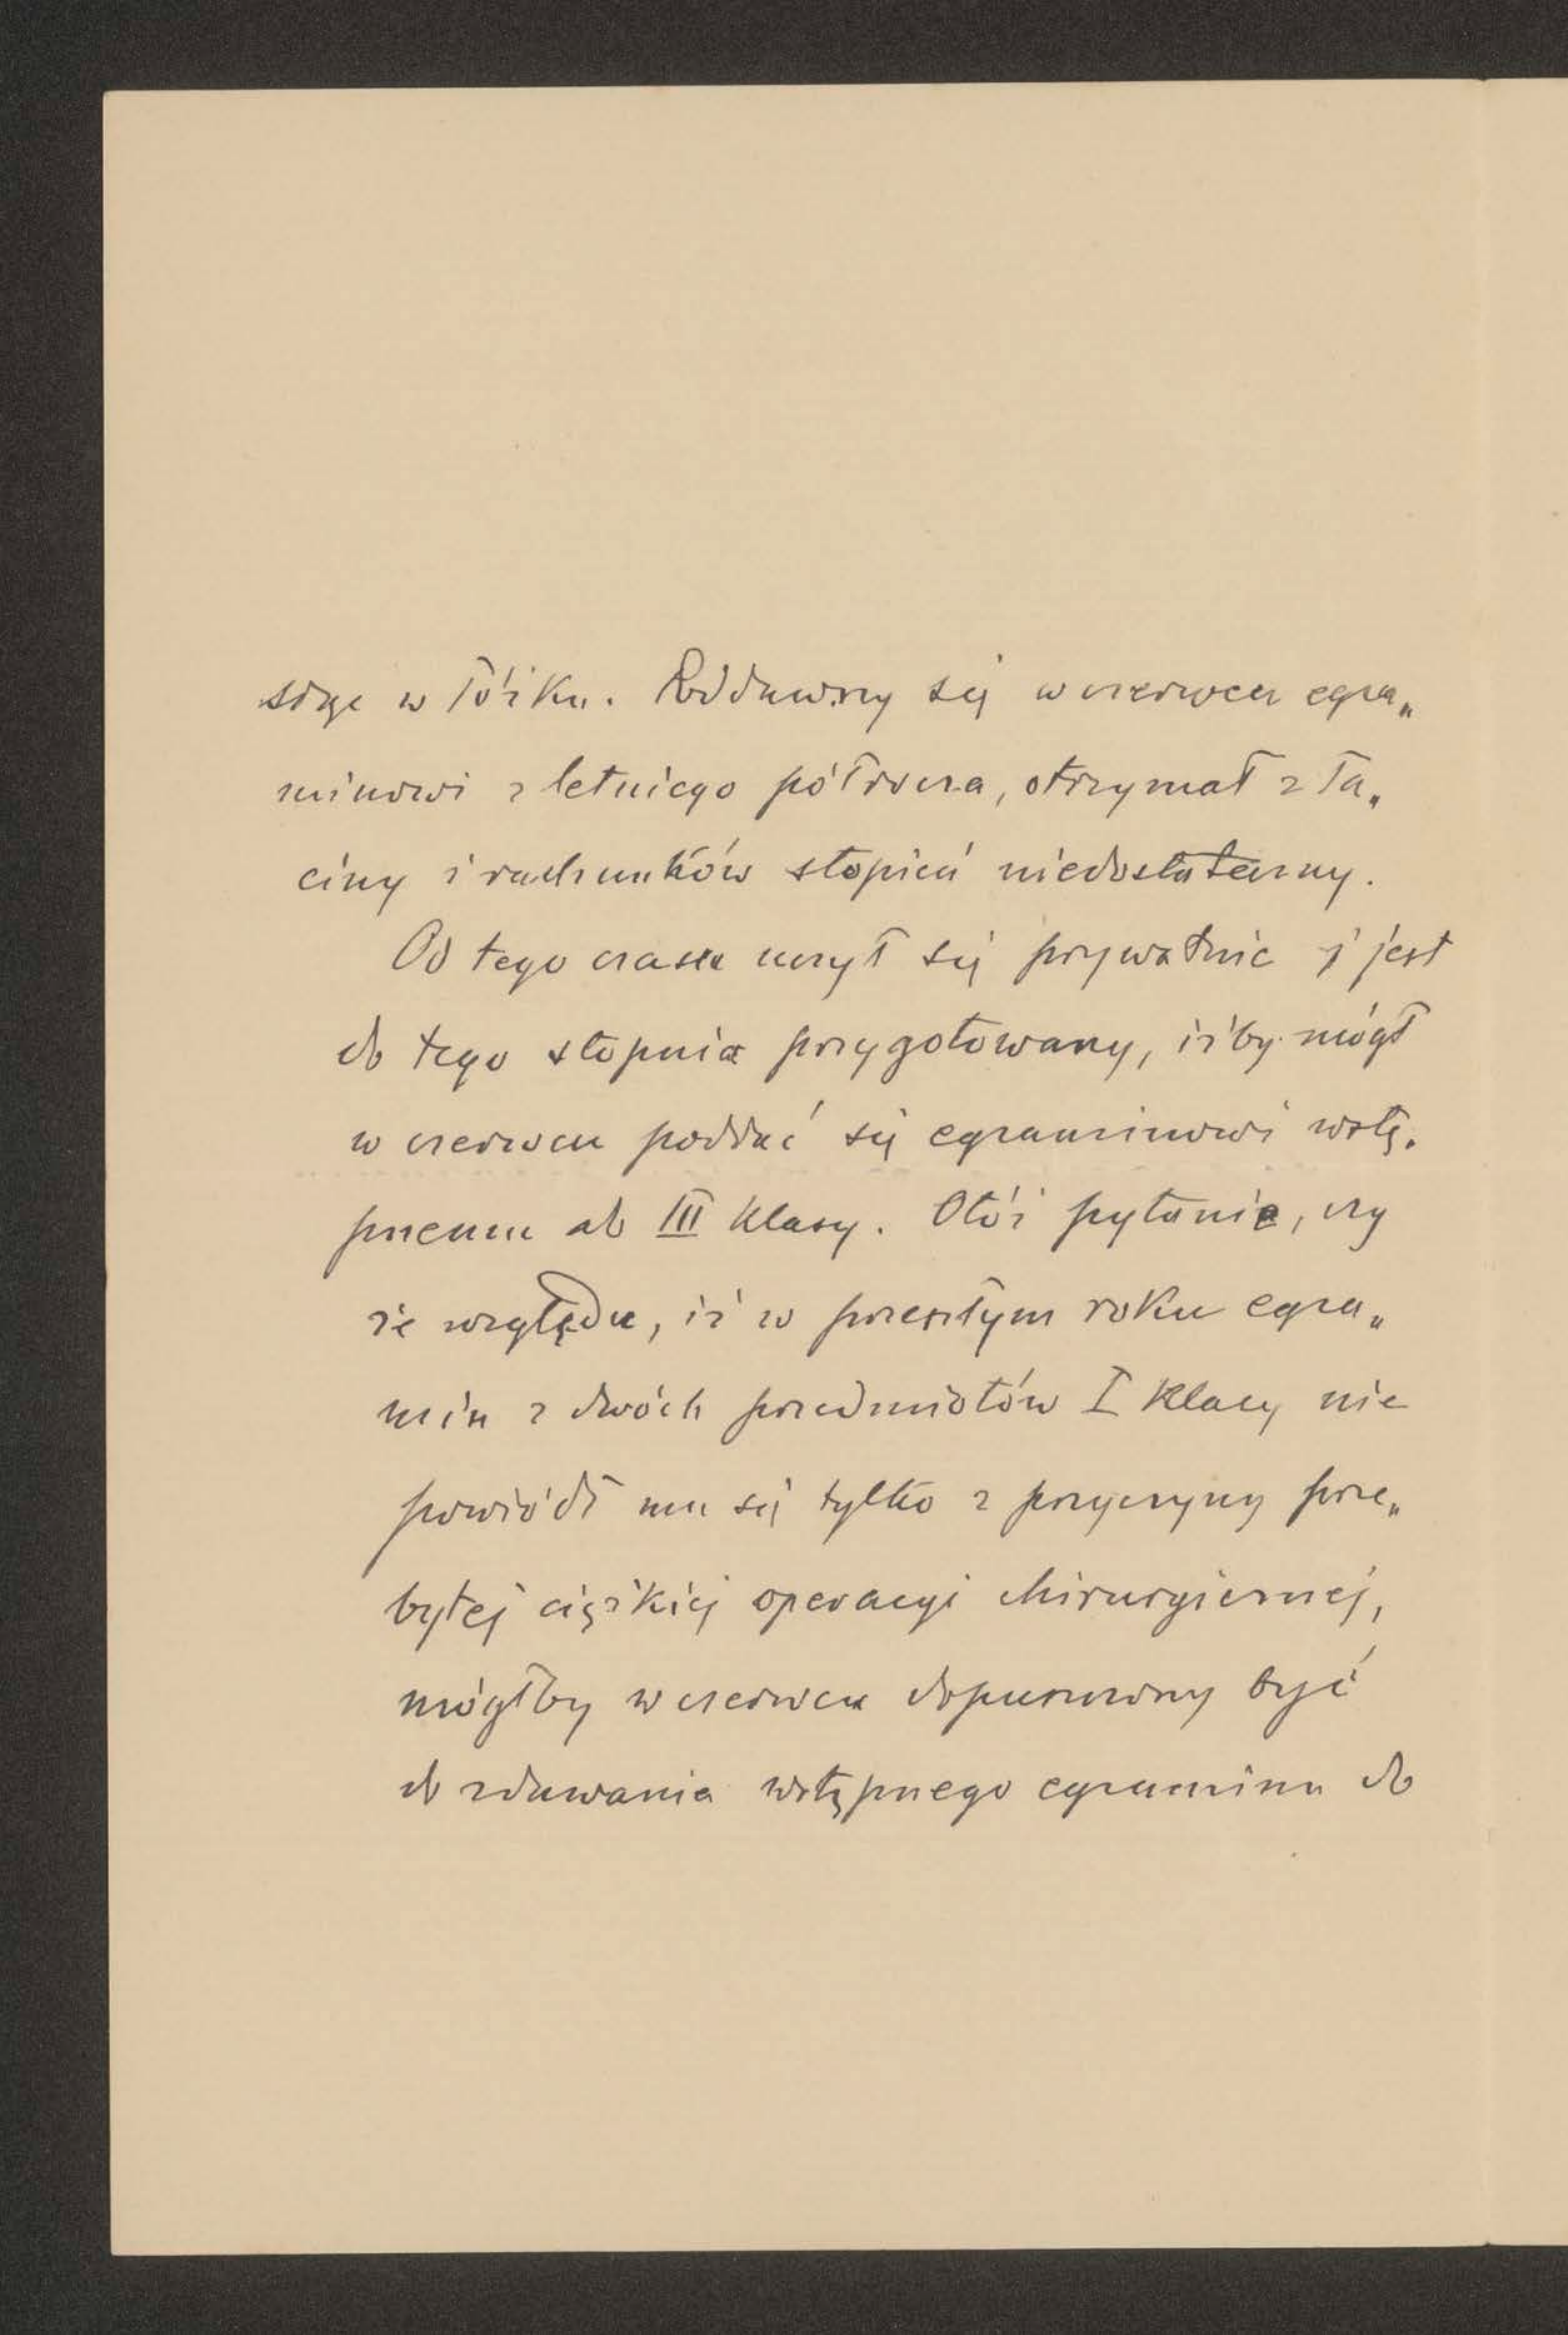 w łóżku. Poddawszy się w czerwcu egza„
minowi z letniego półrocza, otrzymał z ła„
ciny i rachunków stopień niedostateczny.
Od tego czasu uczył się prywatnie i jest
do tego stopnia przygotowany, iżby mógł
w czerwcu poddać się egzaminowi wstę„
pnemu do III klasy. Otóż pytanie, czy
ze względu, iż w przeszłym roku egza„
min z dwóch przedmiotów I klasy nie
powiódł mu się tylko z przyczyny prze„
bytej ciężkiej operacyi chirurgicznej,
mógłby w czerwcu dopuszczony być
do zdawania wstępnego egzaminu do